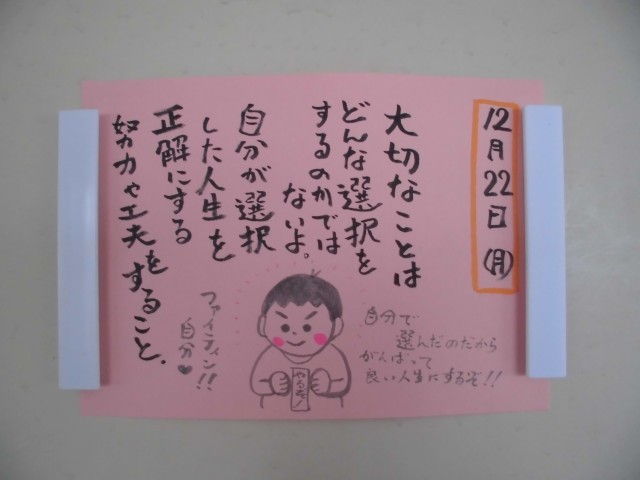 12月22日(月)
大切なことは
どんな選択を
するのかでは
ないよ。
自分が選択
した人生を
正解にする
努力や工夫をすること.
自分で
選んだのだから
がんばって
良い人生にするぞ!!
やるぞ!
ファイティン!!
自分♥